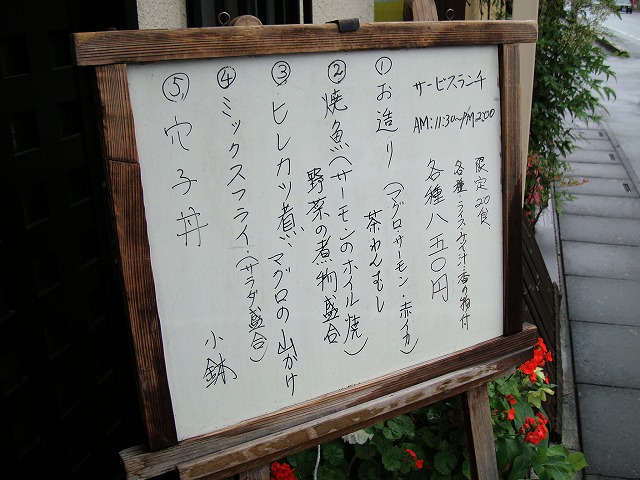 サービスランチ
AM:11:30〜PM2:00
限定20食
各種・ライス・みそ汁・香の物付
各種八五〇円
①お造り(マグロ・サーモン・赤イカ)
茶わんむし
②焼魚(サーモンのホイル焼)
野菜の煮物盛合
③ヒレカツ煮 マグロの山かけ
④ミックスフライ(サラダ盛合)
小鉢
⑤穴子丼